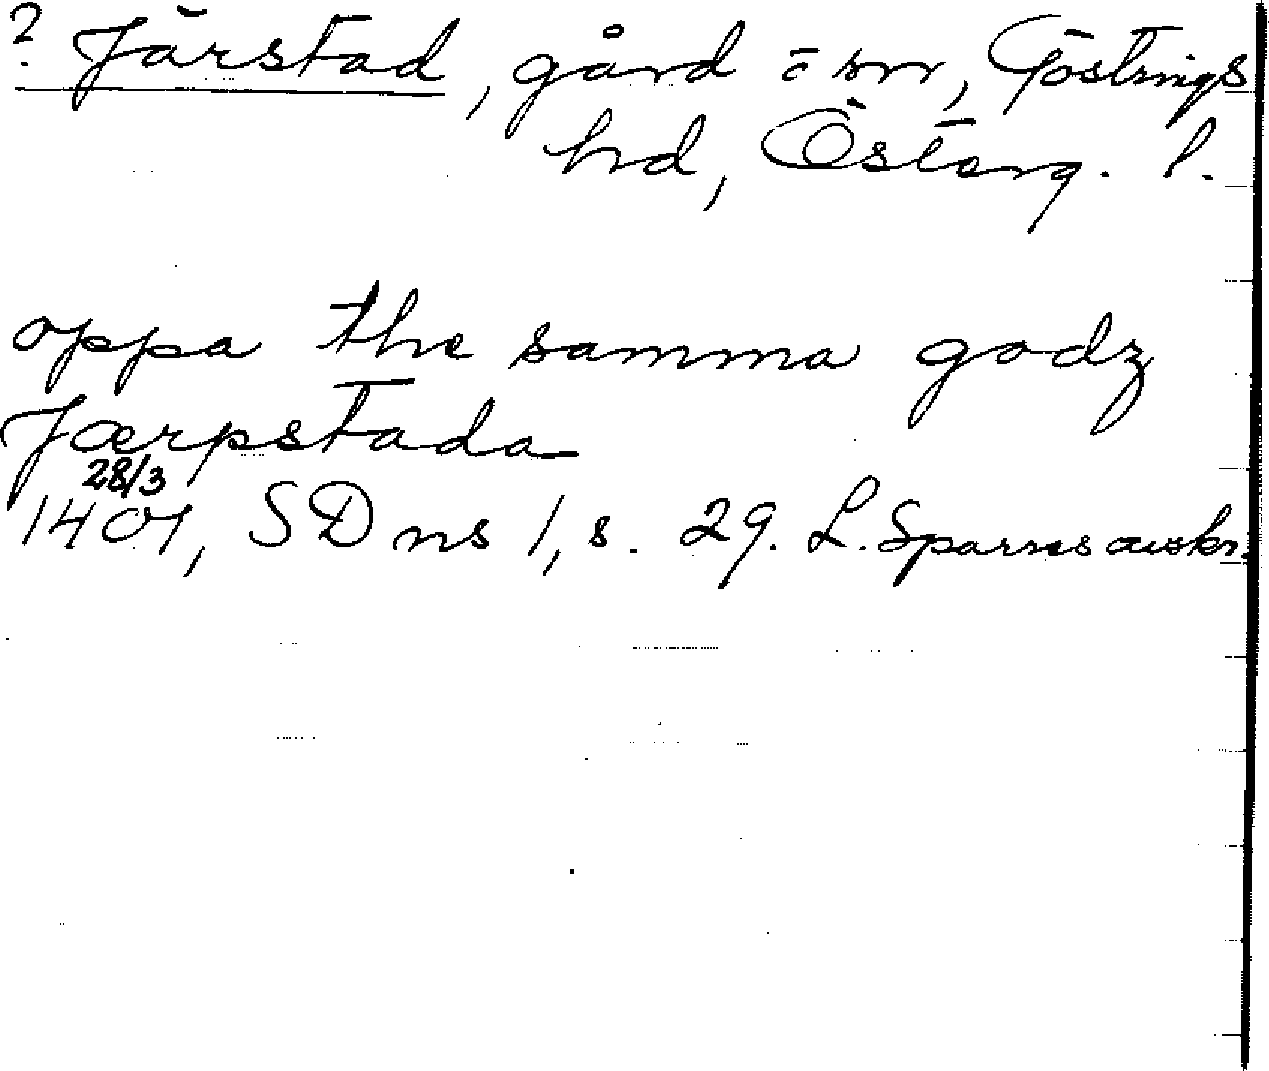 ? Järstad, gård = sn, Göstrings
hd, Österg. l.
oppa the samma godz
Jærpstada
28/3
1401, SD ns 1, s. 29. L. Sparres avskr.